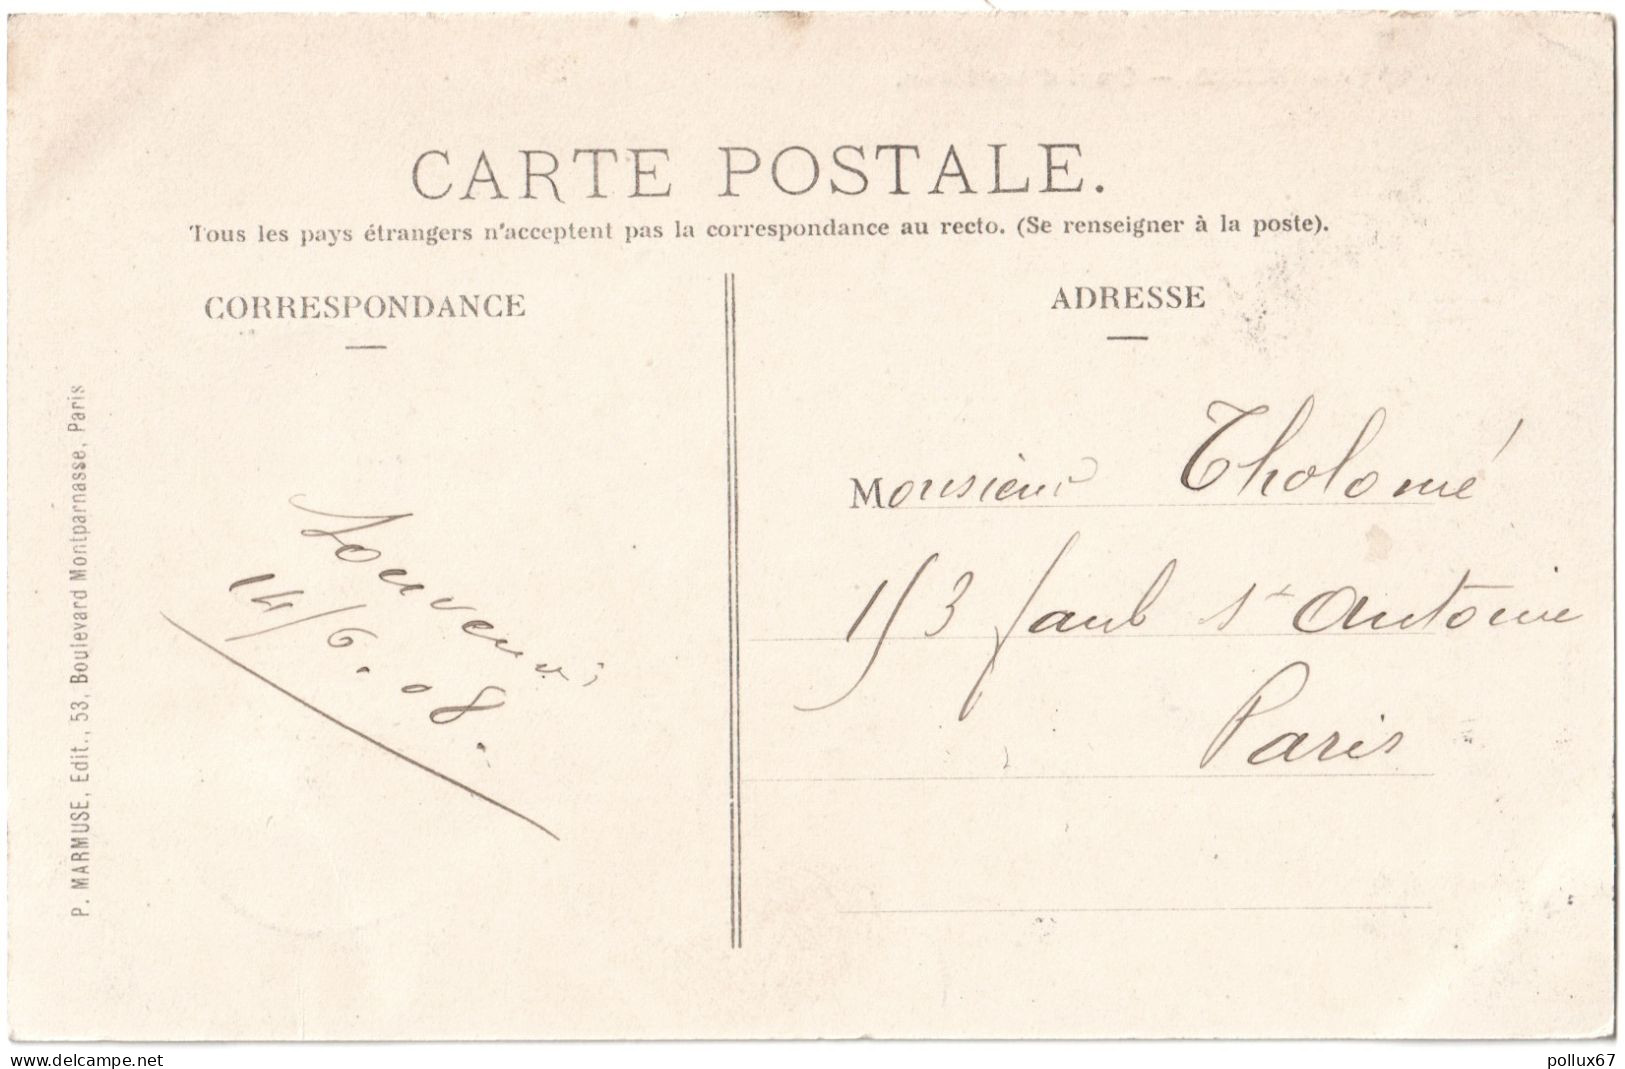 CARTE POSTALE.
Tous les pays étrangers n'acceptent pas la correspondance au recto. (Se renseigner à la poste).
CORRESPONDANCE
ADRESSE
P. MARMUSE, Edit., 53, Boulevard Montparnasse, Paris
Souvenir
14/6.08.
Monsieur Tholomé
153 faub St Antoine
Paris
delcampe.net
pollux67